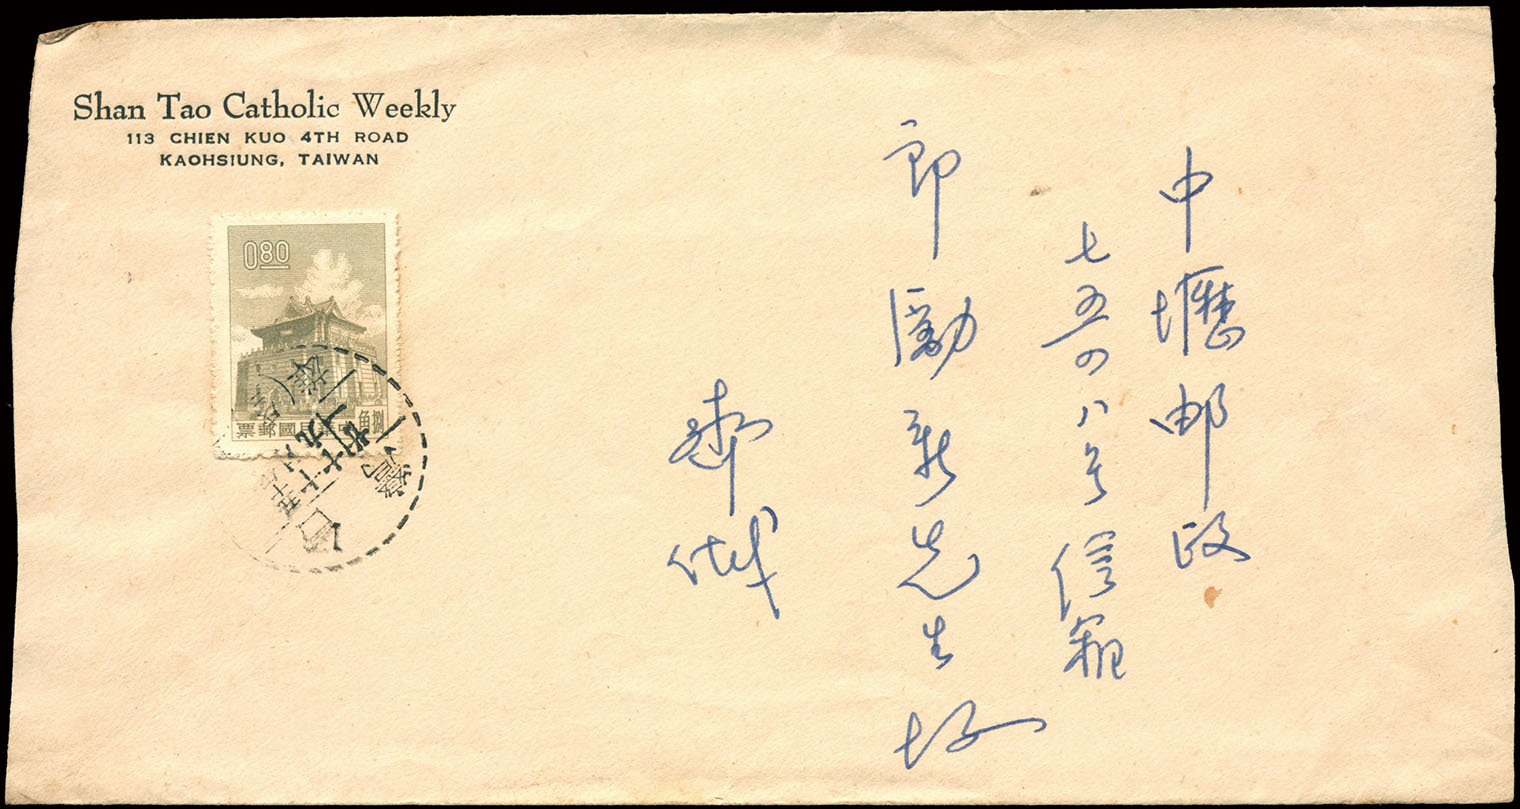 Shan Tao Catholic Weekly
113 CHIEN KUO 4TH ROAD
KAOHSIUNG, TAIWAN
0.80
捌角
票郵國民華中
中壢邮政
七五四八号信箱
郎勵新先生